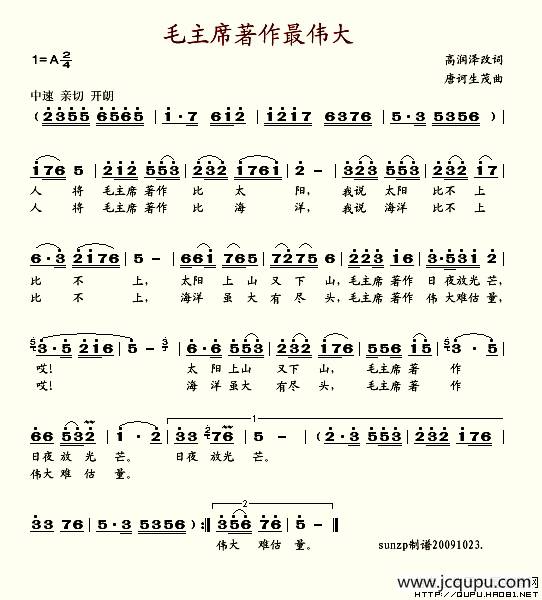 毛主席著作最伟大
1=A 2/4
高润泽改词
唐诃生茂曲
中速 亲切 开朗
( 2355 6565 | 1·7 612 | 1217 6376 | 5·3 5356 ) |
176 5 | 212 553 | 232 1761 | 2 - | 323 553 | 232 17 |
人 将 毛主席 著作 比 太 阳, 我说 太阳 比不 上
人 将 毛主席 著作 比 海 洋, 我说 海洋 比不 上
6·3 2176 | 5 - | 661 765 | 7276 5 | 6·2 223 16 | 3·531 2 |
比 不 上, 太阳 上山 又下 山, 毛主席 著作 日夜放光 芒,
比 不 上, 海洋 虽大 有尽 头, 毛主席 著作 伟大难估 量,
3·5 216 | 5 - | 6·5 553 | 232 176 | 556 15 | 3·5 |
哎! 太 阳上山 又下 山, 毛主席 著 作
哎! 海 洋虽大 有尽 头, 毛主席 著 作
66 532 | 1·2 | 33 276 | 5 - | ( 2·3 55 | 5323 553 | 232 176 |
日夜 放 光 芒。 日夜 放光 芒。
伟大 难 估 量。
1
33 76 | 5·3 5356 ) :‖ 356 76 | 5 - ‖
2
伟大 难估 量。
sunzp制谱20091023.
www.jcqupu.com
HTTP://QUPU.HAO81.NET